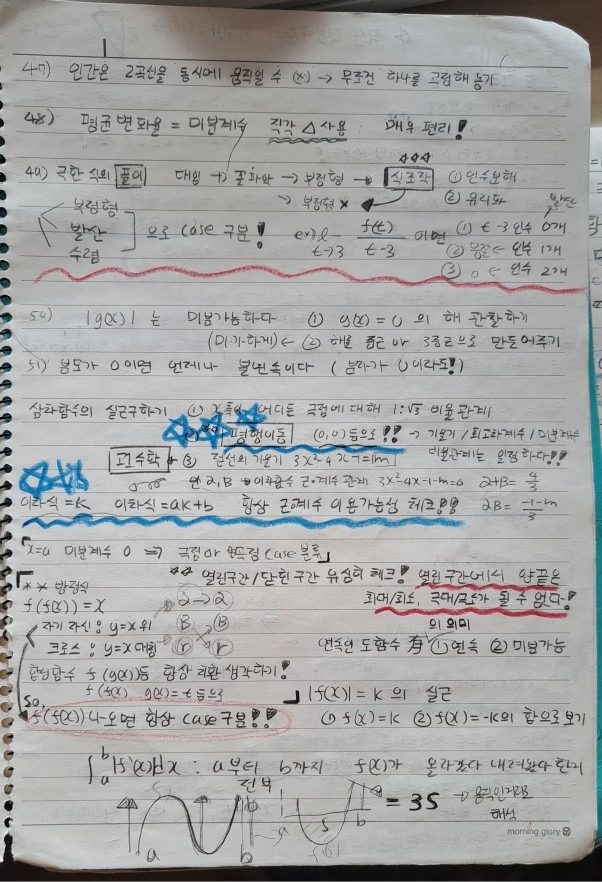 47) 인간은 2곡선을 동시에 움직일 수 (x) → 무조건 하나를 고정해 놓기
48) 평균변화율 = 미분계수 직각 △ 사용 매우 편리!
49) 극한식의 풀이 대입 → → 부정형 → 식조작 ① 인수분해
→ 부정형 x ② 유리화
부정형
발산
수렴
으로 case 구분! ex) l- t→3 f(t) / t-3 이면 ① t-3 인수 0개
② 인수 1개
③ 0 ← 인수 2개
50) |g(x)| 는 미분가능하다 ① g(x) = 0 의 해 관찰하기
(미가하게) ← ② 해를 중근 or 3중근으로 만들어주기
51) 분모가 0이면 언제나 불연속이다 (분자가 0이라도!)
삼차함수의 실근구하기 ① x축이 어디든 극점에 대해 1:√3 비율관계
평행이동 (0,0)등으로!! → 기울기 / 최고차계수 / 미분계수
비율관계는 일정하다!!
③ 접선의 기울기 3x²-4x-1=m
근계수 관계 3x²-4x-1-m=0 α+β = 4/3
αβ = -1-m/3
이차식=k 이차식=ak+b 항상 근계수 이용가능성 체크!!
x=a 미분계수 0 ⇒ 극점 or case 분류
열린구간/닫힌구간 유심히 체크! 열린구간에서 양끝은
최대/최소, 극대/극소가 될 수 없다!
** 방정식
f(f(x)) = x
자기 자신 : y=x 위
크로스 : y=x 대칭
α → α
β β
r r
의 의미
연속인 도함수 有 ① 연속 ② 미분가능
합성함수 f(g(x))등 항상 치환 생각하기!
f(f(x) g(x)=t 등으로
|f(x)| = k 의 실근
So, f(f(x)) 나오면 항상 case 구분!!
① f(x)=k ② f(x)=-k의 합으로 보기
∫ₐᵇ |f'(x)|dx : a부터 b까지 f(x)가 올라갔다 내려왔다 한거
전부
a b
a S b
= 3S → 움직인거리로
해석
morning glory